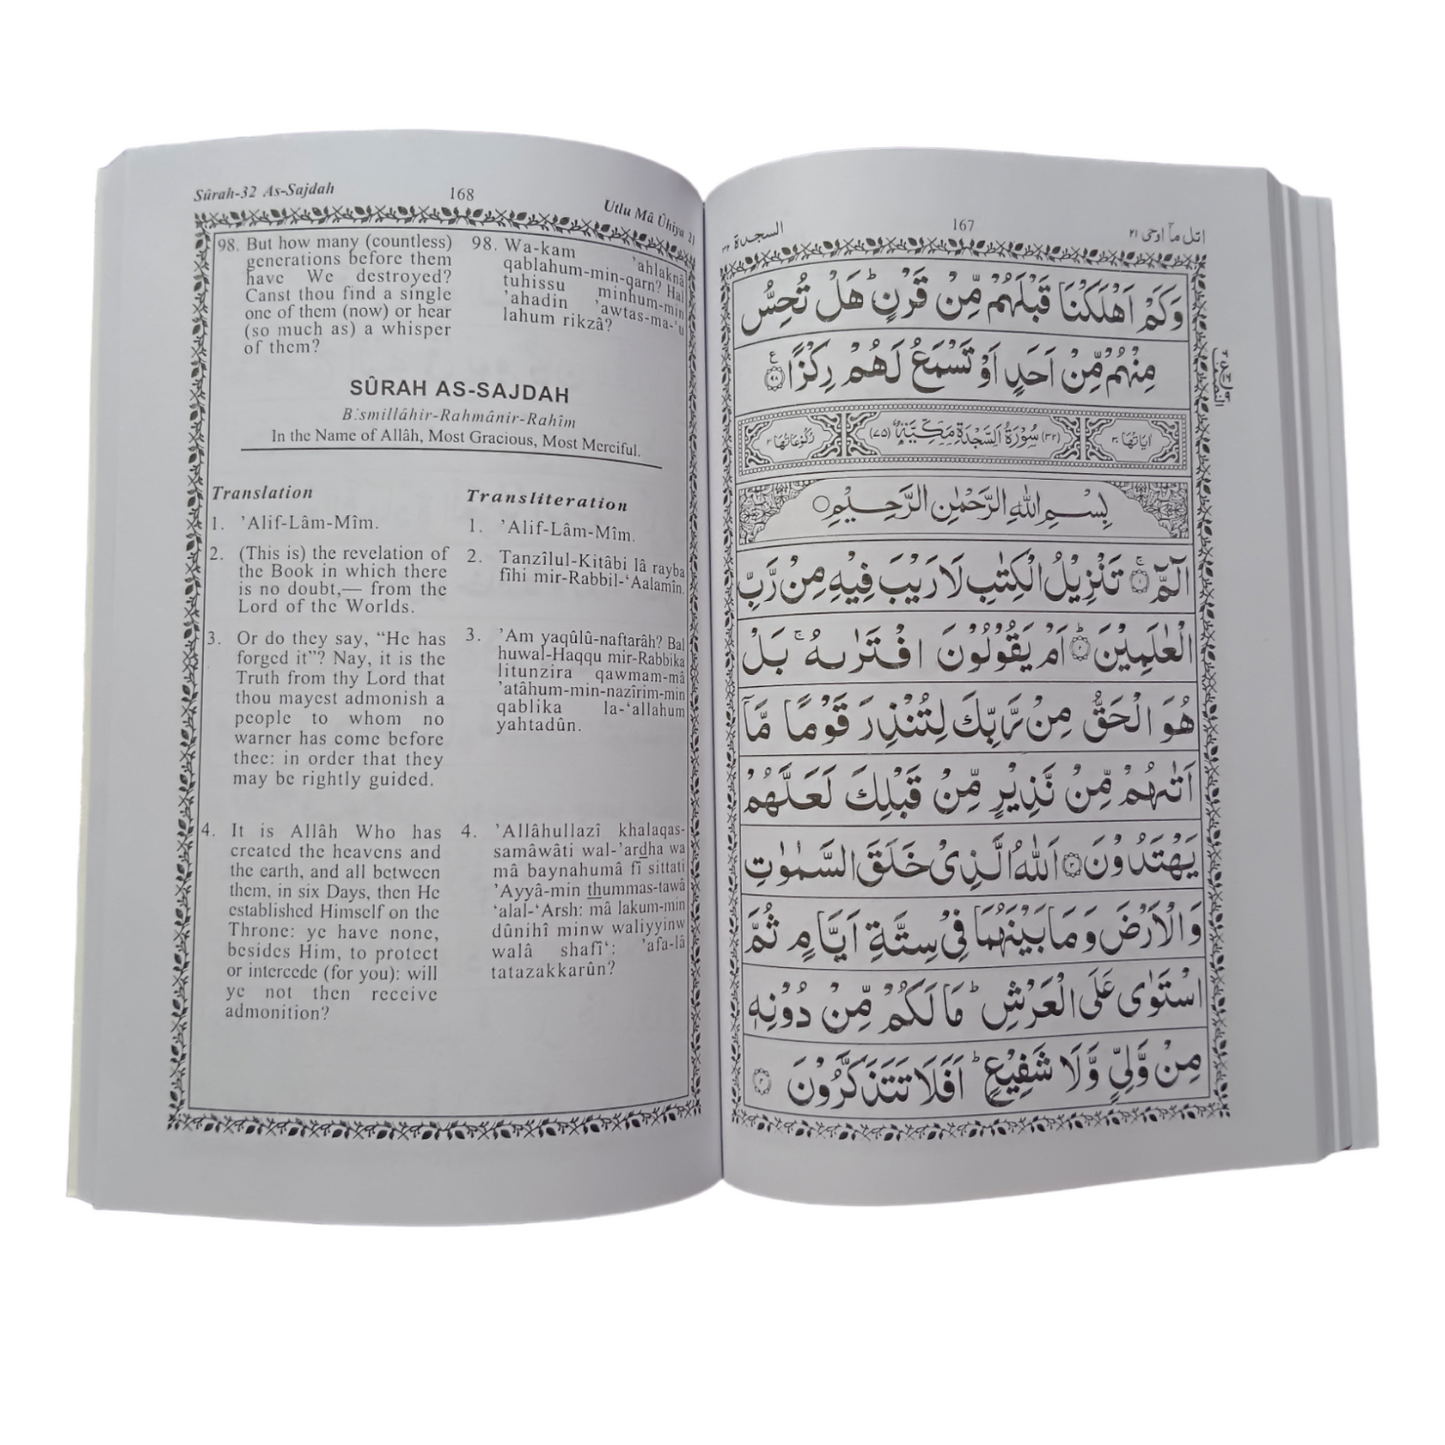 Sûrah-32 As-Sajdah
168
Utlu Mâ Ûhiya 21
98. But how many (countless)
generations before them
have We destroyed?
Canst thou find a single
one of them (now) or hear
(so much as) a whisper
of them?
98. Wa-kam 'ahlaknâ
qablahum-min-qarn? Hal
tuhissu minhum-min
'ahadin 'awtas-ma-'u
lahum rikzâ?
SÛRAH AS-SAJDAH
B:smillâhir-Rahmânir-Rahîm
In the Name of Allâh, Most Gracious, Most Merciful.
Translation
1. 'Alif-Lâm-Mîm.
2. (This is) the revelation of
the Book in which there
is no doubt,— from the
Lord of the Worlds.
3. Or do they say, “He has
forged it”? Nay, it is the
Truth from thy Lord that
thou mayest admonish a
people to whom no
warner has come before
thee: in order that they
may be rightly guided.
4. It is Allâh Who has
created the heavens and
the earth, and all between
them, in six Days, then He
established Himself on the
Throne: ye have none,
besides Him, to protect
or intercede (for you): will
ye not then receive
admonition?
Transliteration
1. 'Alif-Lâm-Mîm.
2. Tanzîlul-Kitâbi lâ rayba
fîhi mir-Rabbil-‘Aalamîn.
3. 'Am yaqûlû-naftarâh? Bal
huwal-Haqqu mir-Rabbika
litunzira qawmam-mâ
'atâhum-min-nazîrim-min
qablika la-‘allahum
yahtadûn.
4. 'Allâhullazî khalaqas-
samâwâti wal-'ardha wa
mâ baynahumâ fî sittati
'Ayyâ-min thummas-tawâ
‘alal-‘Arsh: mâ lakum-min
dûnihî minw waliyyinw
walâ shafî‘: 'afa-lâ
tatazakkarûn?
اتل مآ اوحی ۲۱
167
السجدة ۳۲
وَكَمْ اَهْلَكْنَا قَبْلَهُمْ مِّنْ قَرْنٍ ؕ هَلْ تُحِسُّ
مِنْهُمْ مِّنْ اَحَدٍ اَوْ تَسْمَعُ لَهُمْ رِكْزًا ۹۸
اٰيَاتُهَا ۳۰ (۳۲) سُوْرَةُ السَّجْدَةِ مَكِّيَّةٌ (۷۵) رُكُوْعَاتُهَا ۳
بِسْمِ اللّٰهِ الرَّحْمٰنِ الرَّحِيْمِ
الٓمّٓ ۚ ۱ تَنْزِيْلُ الْكِتٰبِ لَا رَيْبَ فِيْهِ مِنْ رَّبِّ
الْعٰلَمِيْنَ ؕ ۲ اَمْ يَقُوْلُوْنَ افْتَرٰىهُ ۚ بَلْ
هُوَ الْحَقُّ مِنْ رَّبِّكَ لِتُنْذِرَ قَوْمًا مَّآ
اَتٰىهُمْ مِّنْ نَّذِيْرٍ مِّنْ قَبْلِكَ لَعَلَّهُمْ
يَهْتَدُوْنَ ۳ اَللّٰهُ الَّذِىْ خَلَقَ السَّمٰوٰتِ
وَالْاَرْضَ وَمَا بَيْنَهُمَا فِىْ سِتَّةِ اَيَّامٍ ثُمَّ
اسْتَوٰى عَلَى الْعَرْشِ ؕ مَا لَكُمْ مِّنْ دُوْنِهٖ
مِنْ وَّلِىٍّ وَّلَا شَفِيْعٍ ؕ اَفَلَا تَتَذَكَّرُوْنَ ۴